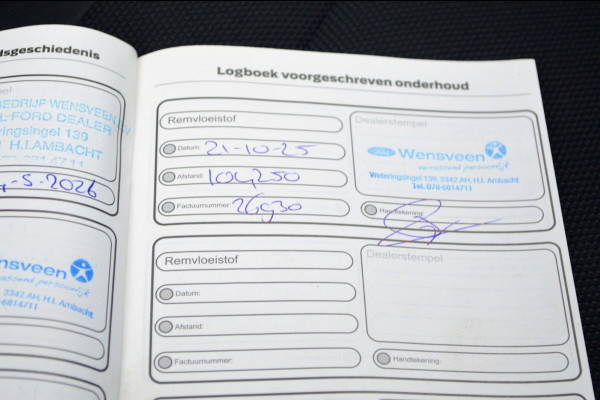 dsgeschiedenis
BEDRIJF WENSVEEN BV
FORD DEALER
eringsingel 139
H.I.AMBACHT
5-2026
nsveen
assend persoonlijk
3342 AH, H.I. Ambacht
-6814711
Logboek voorgeschreven onderhoud
Remvloeistof
Datum: 21-10-25
Afstand: 104250
Factuurnummer: 26930
Dealerstempel
Ford Wensveen
verrassend persoonlijk
Weteringsingel 139, 3342 AH, H.I. Ambacht
Tel. 078-6814711
Handtekening:
Remvloeistof
Datum:
Afstand:
Factuurnummer:
Dealerstempel
Handtekening: